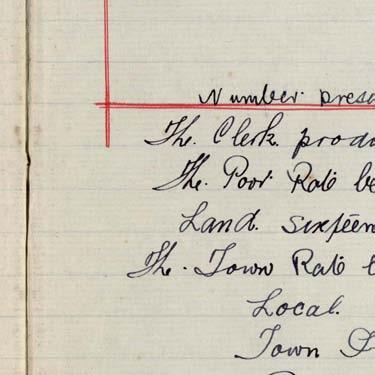 Number prese
The Clerk produ
The Poor Rate be
Land. sixteen
The Town Rate
Local.
Town